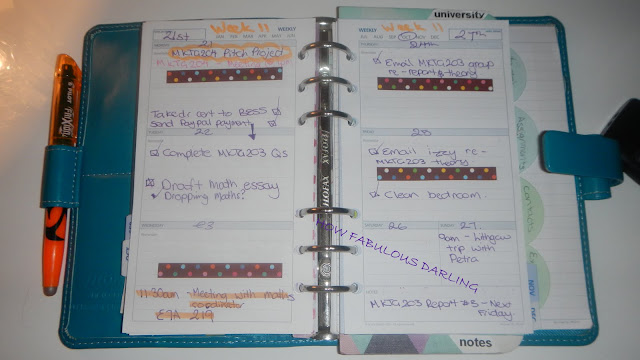 Week 11
WEEKLY
21st
21
MKTG204 Pitch Project
MKTG204 -
Take dr cert to BESS
Send Paypal payment
22
Complete MKTG203 Qs
Draft math essay
Dropping maths?
11:30am - Meeting with maths
co-ordinator
E7A 219
university
Week 11
WEEKLY
27th
Email MKTG203 group
re - report & theory
25
Email izzey re -
MKTG203 theory
Clean bedroom.
26
27.
9am - Lithgow
trip with
Petra
NOTES
MKTG203 Report #5 - New
Friday.
notes
Assignments
PILOT
FriXion
FILOFAX
NOV
HOW FABULOUS DARLING